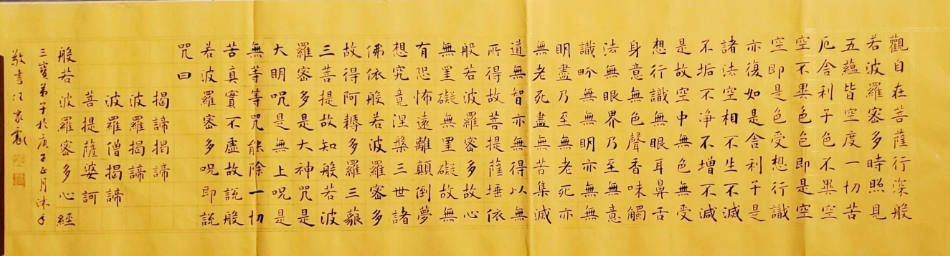 觀自在菩薩行深般
若波羅密多時照見
五蘊皆空度一切苦
厄舍利子色不異空
空不異色色即是空
空即是色受想行識
亦復如是舍利子是
諸法空相不生不滅
不垢不淨不增不減
是故空中無色無受
想行識無眼耳鼻舌
身意無色聲香味觸
法無眼界乃至無意
識界無無明亦無無
明盡乃至無老死亦
無老死盡無苦集滅
道無智亦無得以無
所得故菩提薩埵依
般若波羅密多故心
無罣礙無罣礙故無
有恐怖遠離顛倒夢
想究竟涅槃三世諸
佛依般若波羅密多
故得阿耨多羅三藐
三菩提故知般若波
羅密多是大神咒是
大明咒是無上咒是
無等等咒能除一切
苦真實不虛故說般
若波羅密多咒即說
咒曰
揭諦揭諦
波羅揭諦
波羅僧揭諦
菩提薩婆訶
般若波羅密多心經
三寶弟子於庚子正月沐手
敬書